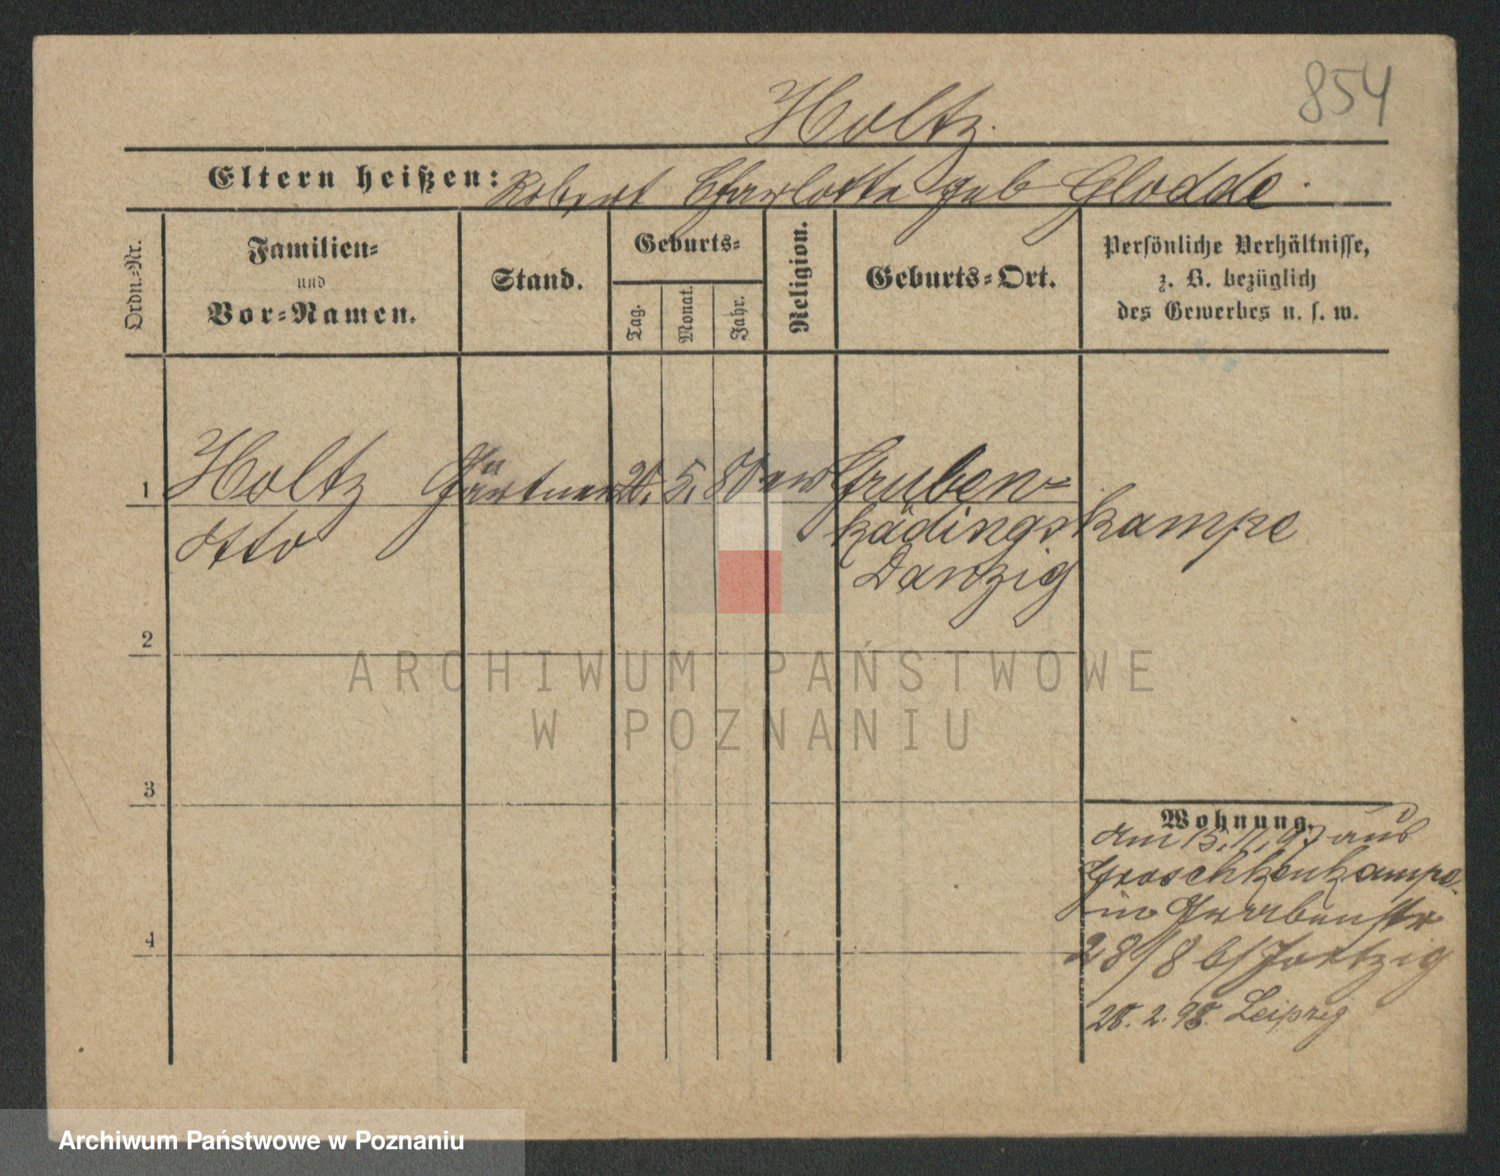 854
Holtz.
Eltern heißen: Robert Charlotte geb Glodde.
Ordn.-Nr.
Familien-
und
Vor-Namen.
Stand.
Geburts-
Tag.
Monat.
Jahr.
Religion.
Geburts-Ort.
Persönliche Verhältnisse,
z. B. bezüglich
des Gewerbes u. s. w.
1 Holtz Gärtner 20. 5. 80 ew Gruben-
Otto kädingskampe
Danzig
2
ARCHIWUM PAŃSTWOWE
W POZNANIU
3
Wohnung.
Am 15.11.97 aus
Groschkenkampe
in
28/8 b/
4
28. 2. 98. Leipzig
Archiwum Państwowe w Poznaniu